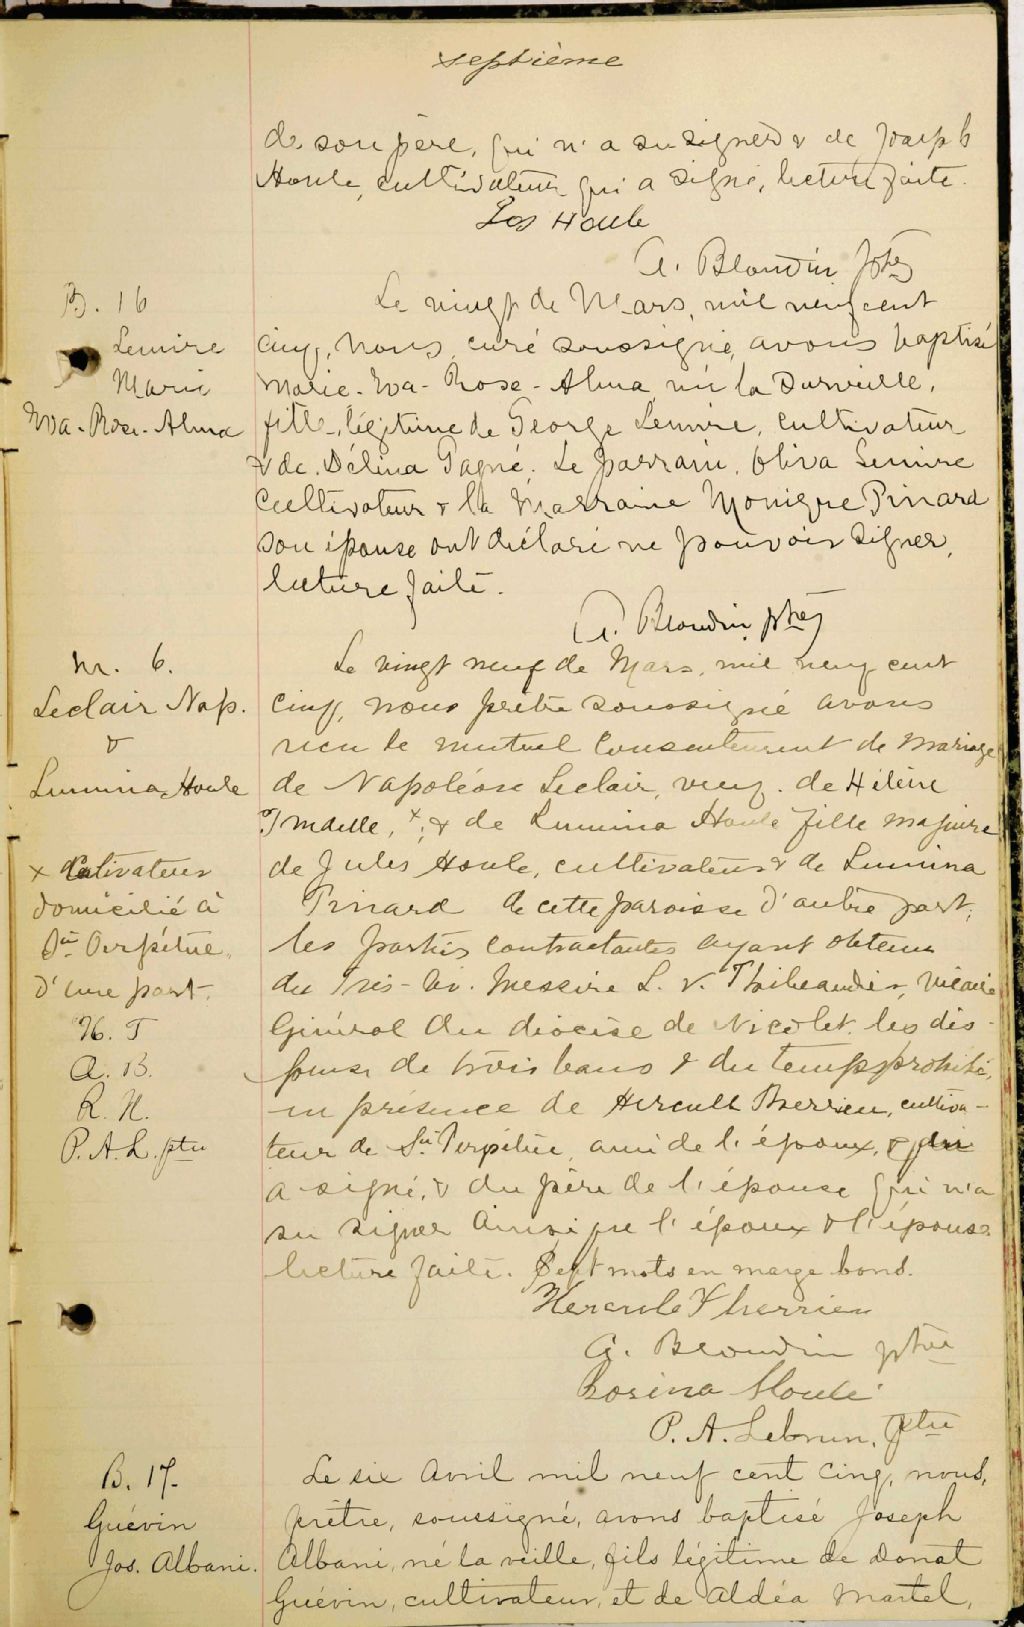 septième
de son père, qui n'a su signer & de Joseph
Houle, cultivateur qui a signé, lecture faite.
Jos Houle
A. Blondin ptre
B. 16
Lemire
Marie
Eva-Rose-Alma
Le vingt de Mars, mil neuf cent
cinq, nous, curé soussigné, avons baptisé
Marie-Eva-Rose-Alma, née la surveille,
fille légitime de George Lemire, cultivateur
& de Délina Gagné. Le parrain, Oliva Lemire
cultivateur & la Marraine Monique Pinard
son épouse ont déclaré ne pouvoir signer,
lecture faite.
A. Blondin ptre
M. 6.
Leclair Nap.
&
Lumina Houle
x cultivateur
domicilié à
Ste Perpétue,
d'une part.
H. T
A. B.
R. H.
P. A. L. ptre
Le vingt neuf de Mars, mil neuf cent
cinq, nous prêtre soussigné avons
reçu le mutuel consentement de mariage
de Napoléon Leclair, veuf de Hélène
x, & de Lumina Houle fille majeure
de Jules Houle, cultivateur & de Lumina
Pinard de cette paroisse d'autre part;
les parties contractantes ayant obtenu
du Très-Rév. Messire L. V. Thibaudier, Vicaire
Général du diocèse de Nicolet, les dis-
pense de trois bans & du temps prohibé,
en présence de Hercule Therrien, cultiva-
teur de Ste Perpétue, ami de l'époux, & qui
a signé, & du père de l'épouse qui n'a
su signer ainsi que l'époux & l'épouse
lecture faite. Sept mots en marge bons.
Hercule Therrien
A. Blondin ptre
Rosina Houle
P. A. Lebrun, Ptre
B. 17.
Guévin
Jos. Albani.
Le six Avril mil neuf cent cinq, nous,
prêtre, soussigné, avons baptisé Joseph
Albani, né la veille, fils légitime de Donat
Guévin, cultivateur, et de Aldéa Martel,